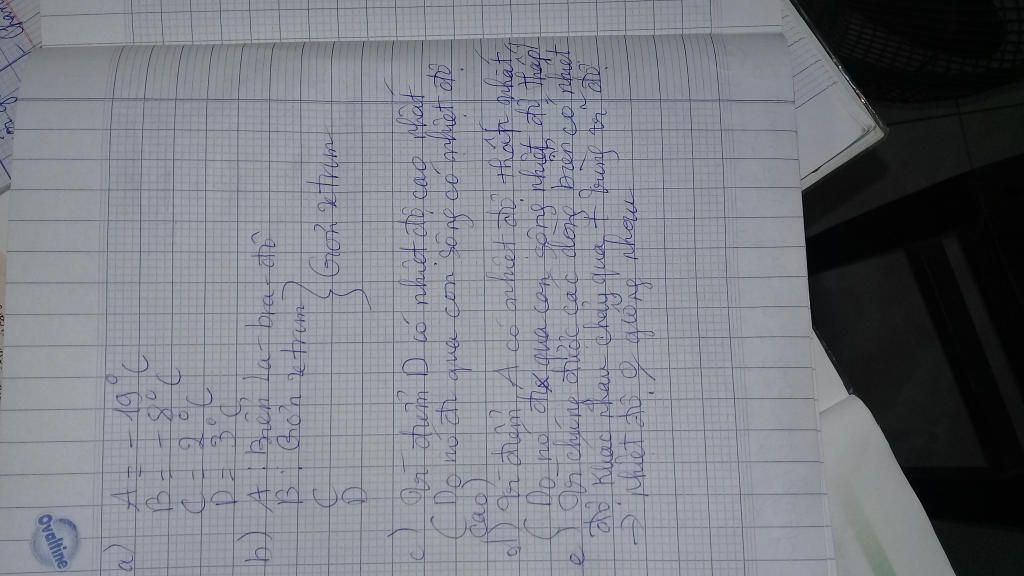 Ovaltine
a) A = -19°C
B = -8°C
C = 2°C
D = 3°C
b) A: Biển La-bra-đô
B: Bơn xtrim } Gơn xtrim
C
D
c) Ở điểm D có nhiệt độ cao nhất
(Do nó đi qua con sông có nhiệt độ
cao)
d) Ở điểm A có nhiệt độ thấp nhất
(Do nó đi qua con sông nhiệt độ thấp)
e) chúng được các dòng biển có nhiệt
độ khác nhau chảy qua + vĩ độ
→ nhiệt độ giống nhau